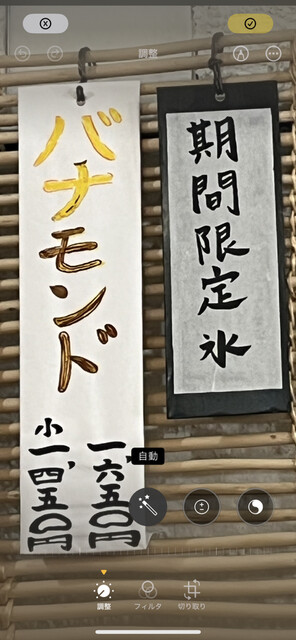 調整
期間限定氷
バナモンド
一、六五〇円
小一、四五〇円
自動
調整
フィルタ
切り取り